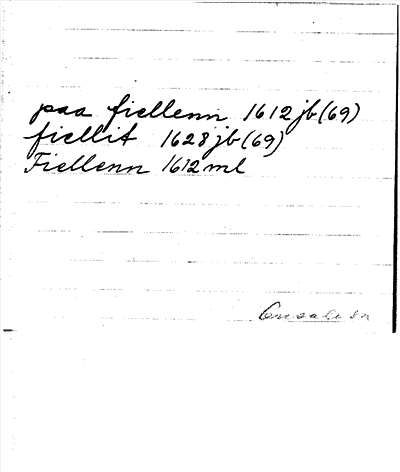 paa fiellenn 1612 jb (69)
fiellit 1628 jb (69)
Fiellenn 1612 ml
Onsale sn